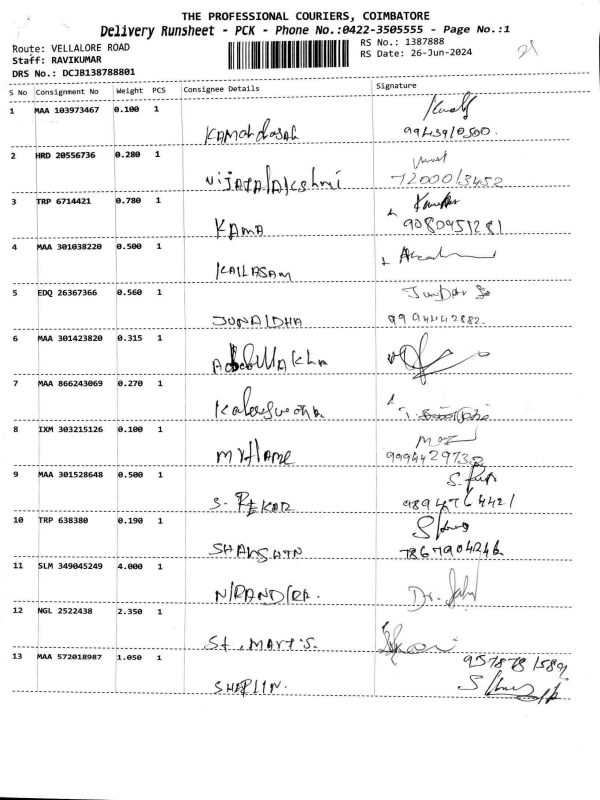 THE PROFESSIONAL COURIERS, COIMBATORE
Delivery Runsheet - PCK - Phone No.:0422-3505555 - Page No.:1
Route: VELLALORE ROAD
RS No.: 1387888
Staff: RAVIKUMAR
RS Date: 26-Jun-2024
DRS No.: DCJB138788801
S No Consignment No Weight PCS Consignee Details Signature
1 MAA 103973467 0.100 1
9943910500.
2 HRD 20556736 0.280 1
Vijayalakshmi 7200013452
3 TRP 6714421 0.780 1
KAMA 9080951281
4 MAA 301038220 0.500 1
KAILASAM
5 EDQ 26367366 0.560 1
9994442882.
6 MAA 301423820 0.315 1
7 MAA 866243069 0.270 1
8 IXM 303215126 0.100 1
9994429738
9 MAA 301528648 0.500 1
S. 9894764421
10 TRP 638380 0.190 1
7867904246
11 SLM 349045249 4.000 1
Dr.
12 NGL 2522438 2.350 1
St. MARY'S.
13 MAA 572018987 1.050 1
SHERLIN.